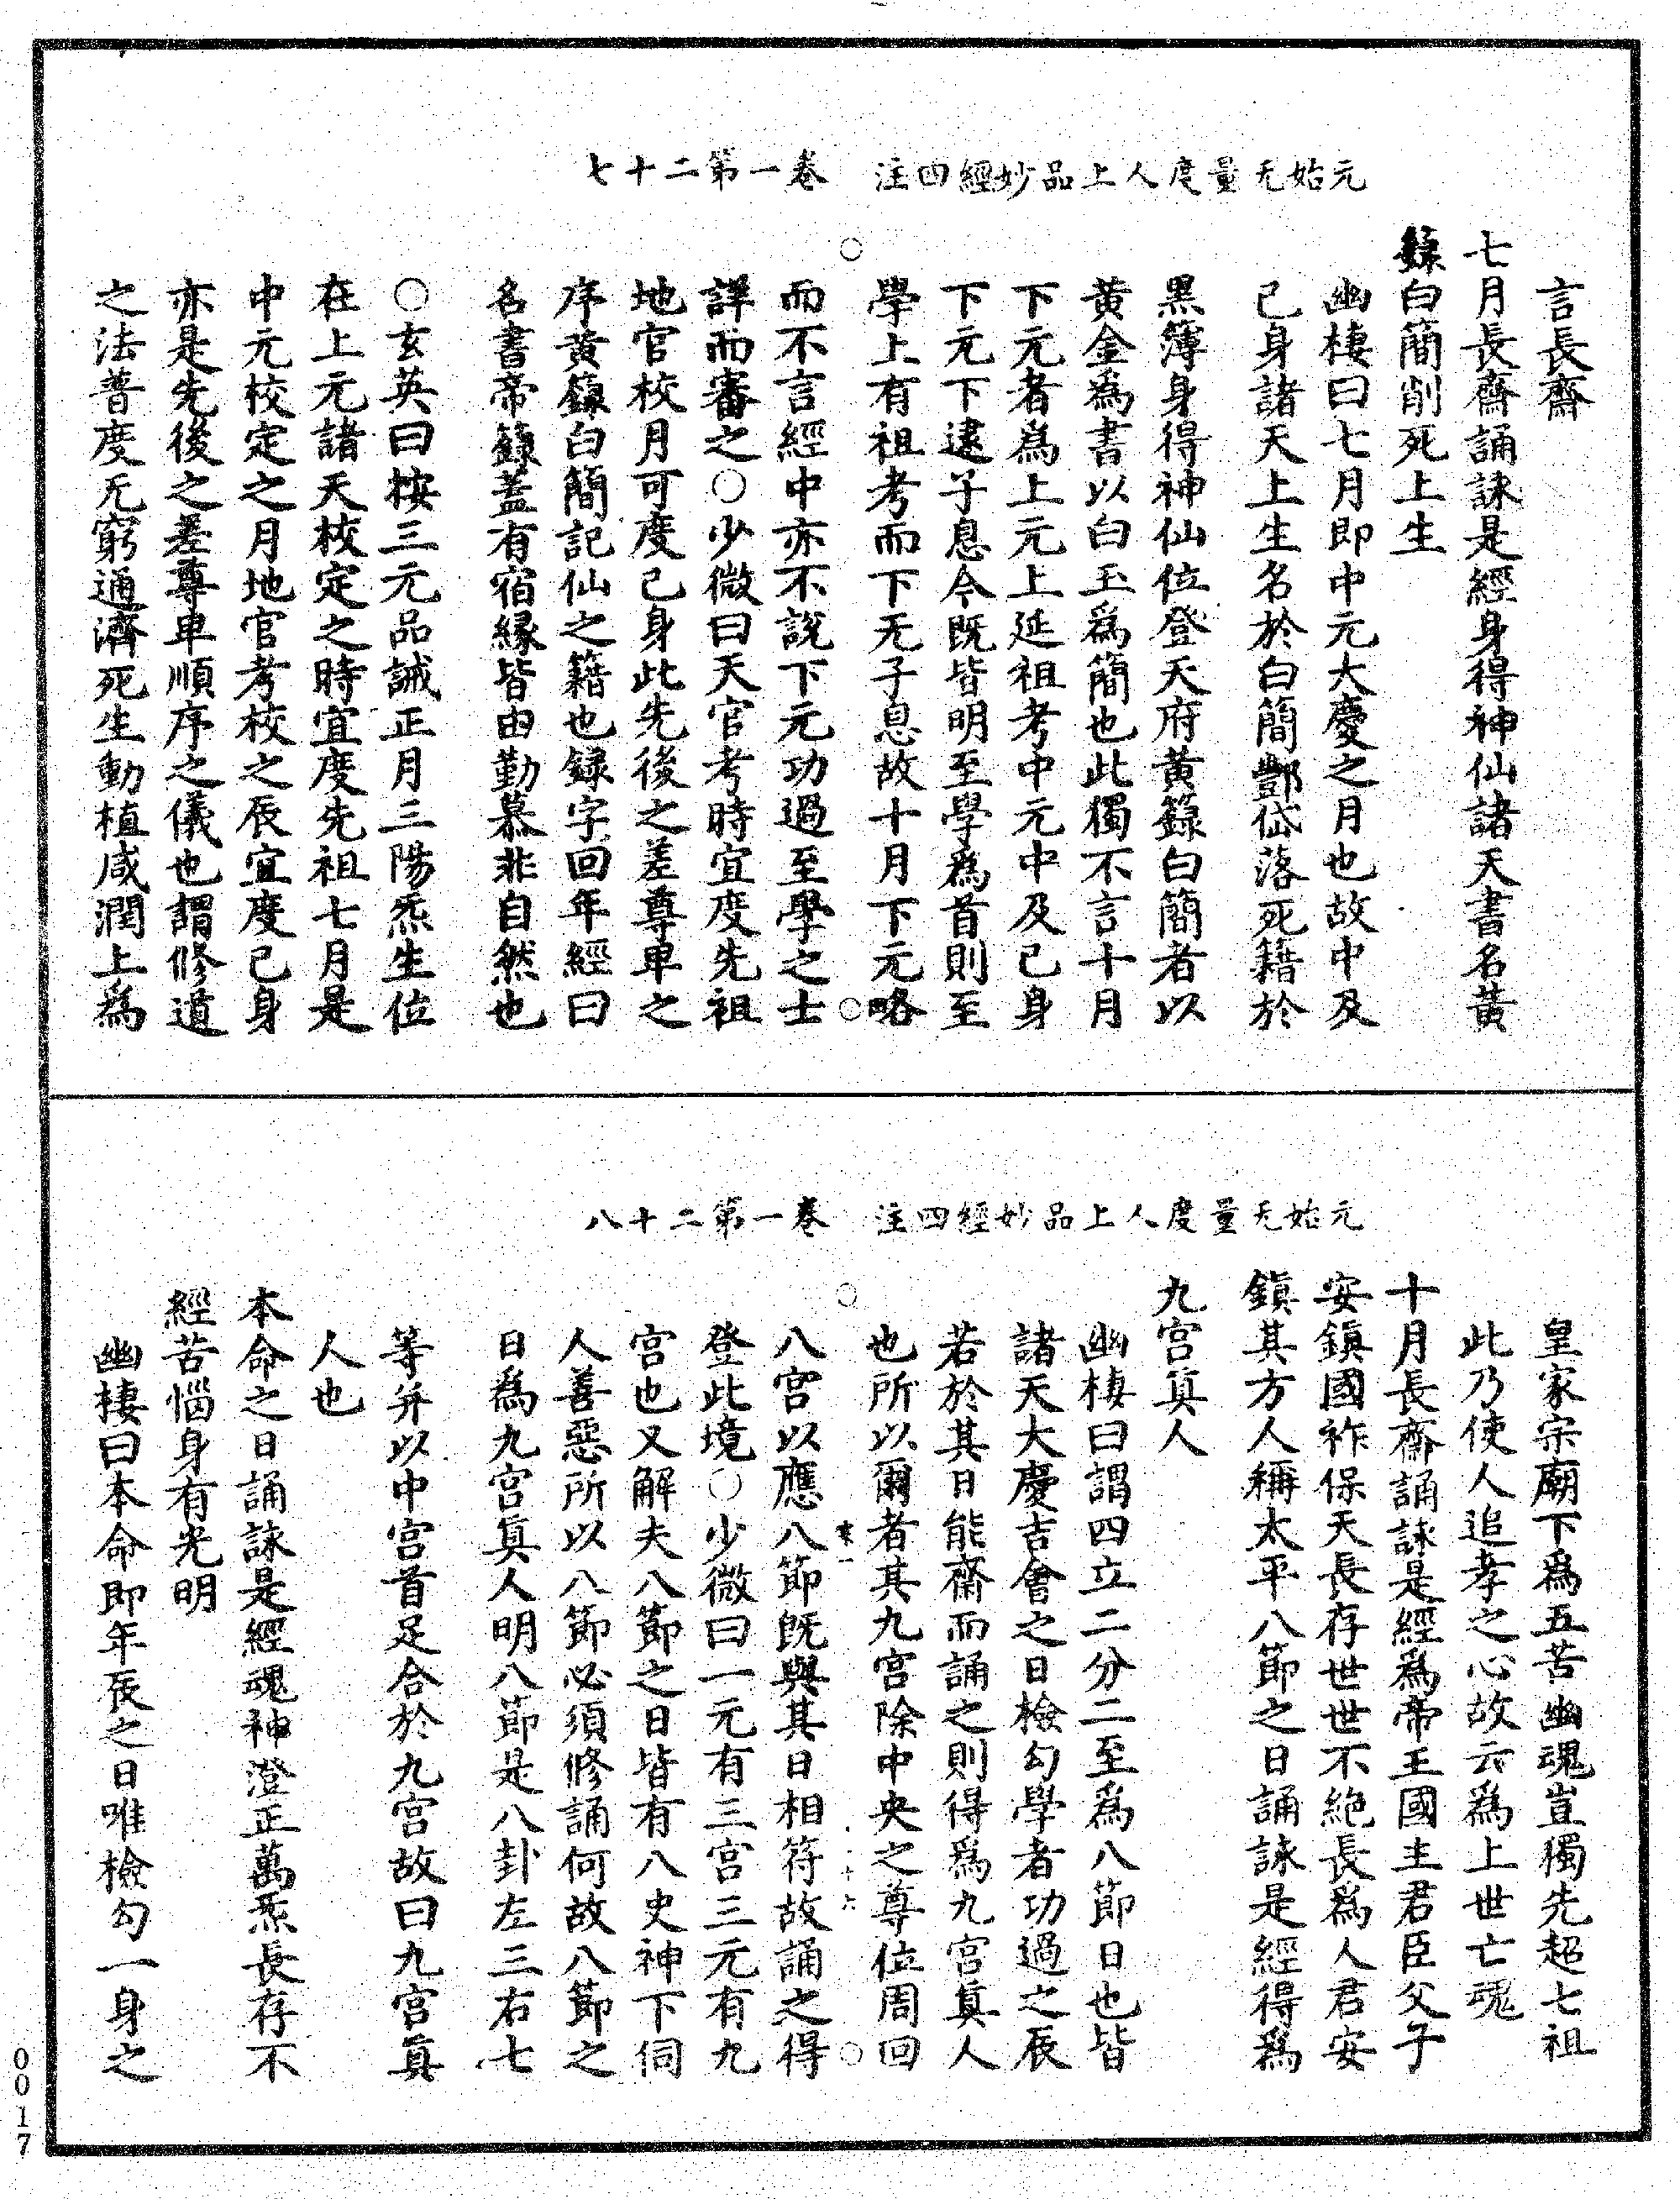 元始无量度人上品妙經四注　卷一第二十七
言長齋
七月長齋誦詠是經身得神仙諸天書名黃
籙白簡削死上生
幽棲曰七月即中元大慶之月也故中及
己身諸天上生名於白簡酆岱落死籍於
黑簿身得神仙位登天府黃籙白簡者以
黃金爲書以白玉爲簡也此獨不言十月
下元者爲上元上延祖考中元中及己身
下元下逮子息今既皆明至學爲首則至
學上有祖考而下无子息故十月下元略
而不言經中亦不說下元功過至學之士
詳而審之○少微曰天官考時宜度先祖
地官校月可度己身此先後之差尊卑之
序黃籙白簡記仙之籍也録字回年經曰
名書帝籙蓋有宿縁皆由勤慕非自然也
○玄英曰桉三元品誡正月三陽炁生位
在上元諸天校定之時宜度先祖七月是
中元校定之月地官考校之辰宜度己身
亦是先後之差尊卑順序之儀也謂修道
之法普度无窮通濟死生動植咸潤上爲
元始无量度人上品妙經四注　卷一第二十八
皇家宗廟下爲五苦幽魂豈獨先超七祖
此乃使人追孝之心故云爲上世亡魂
十月長齋誦詠是經爲帝王國主君臣父子
安鎮國祚保天長存世世不絕長爲人君安
鎮其方人稱太平八節之日誦詠是經得爲
九宮眞人
幽棲曰謂四立二分二至爲八節日也皆
諸天大慶吉會之日檢勾學者功過之辰
若於其日能齋而誦之則得爲九宮眞人
也所以爾者其九宮除中央之尊位周回
八宮以應八節既與其日相符故誦之得
登此境○少微曰一元有三宮三元有九
宮也又解夫八節之日皆有八史神下伺
人善惡所以八節必須修誦何故八節之
日爲九宮眞人明八節是八卦左三右七
等并以中宮首足合於九宮故曰九宮眞
人也
本命之日誦詠是經魂神澄正萬炁長存不
經苦惱身有光明
幽棲曰本命即年辰之日唯檢勾一身之
0017